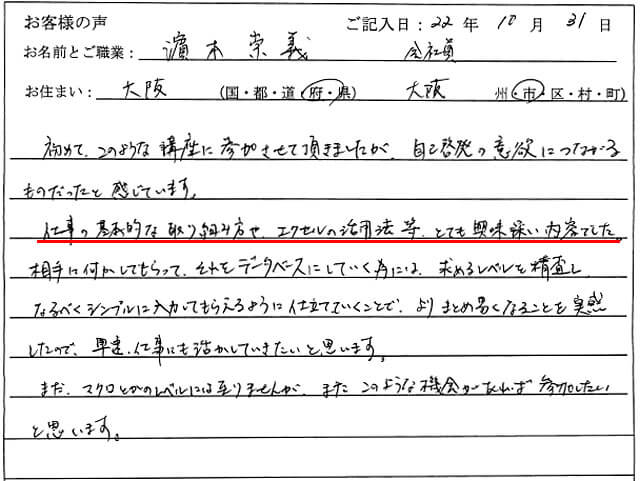 お客様の声 ご記入日：22年 10月 31日
お名前とご職業： 濱本 崇義 会社員
お住まい： 大阪 （国・都・道・府・県） 大阪 州・市・区・村・町）
初めて、このような講座に参加させて頂きましたが、自己啓発の意欲につながる
ものだったと感じています。
仕事の基本的な取り組み方や、エクセルの活用法等、とても興味深い内容でした。
相手に何かしてもらって、それをデータベースにしていく為には、求めるレベルを精査し、
なるべくシンプルに入力してもらえるように仕立てていくことで、よりまとめ易くなることを実感
したので、早速、仕事にも活かしていきたいと思います。
まだ、マクロとかのレベルには至りませんが、またこのような機会があれば参加したい
と思います。